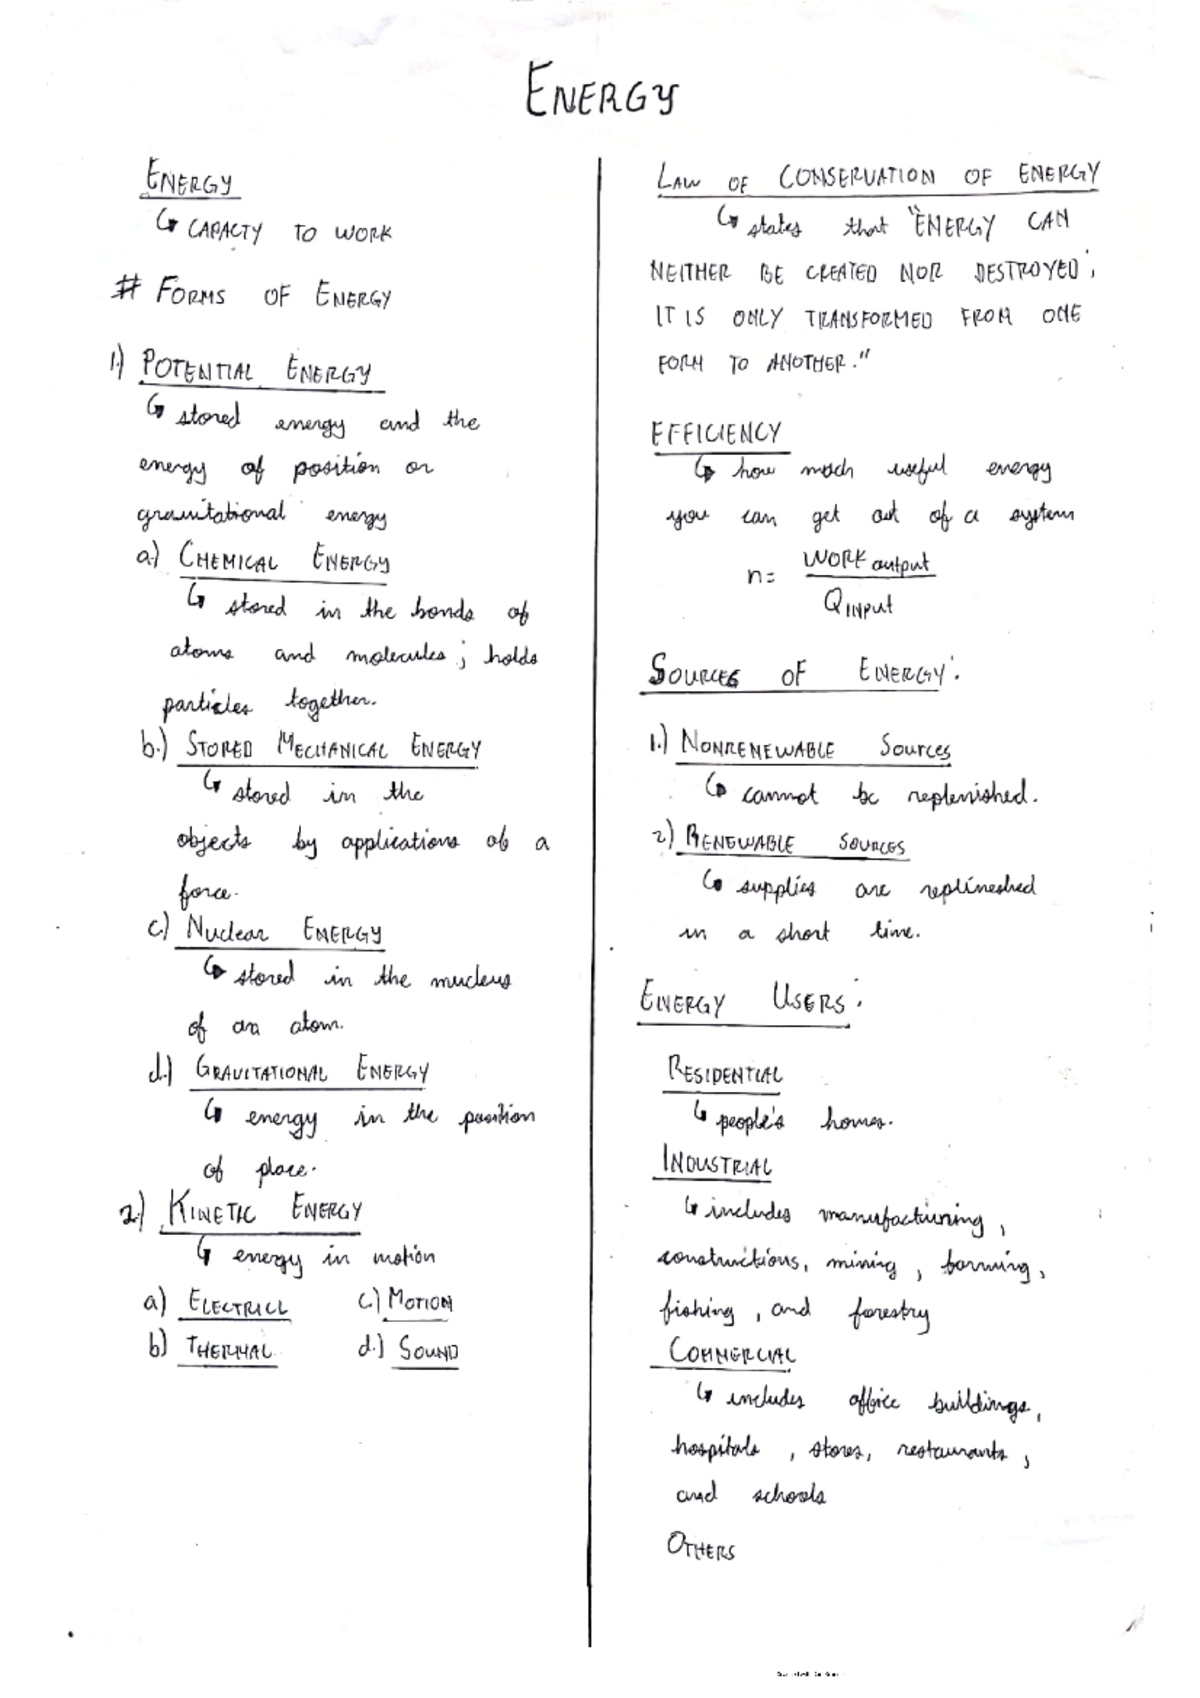 ENERGY
ENERGY
↳ CAPACTY TO WORK
# FORMS OF ENERGY
1.) POTENTIAL ENERGY
↳ stored energy and the
energy of position or
gravitational energy
a.) CHEMICAL ENERGY
↳ stored in the bonds of
atoms and molecules; holds
particles together.
b.) STORED MECHANICAL ENERGY
↳ stored in the
objects by applications of a
force.
c.) Nuclear ENERGY
↳ stored in the nucleus
of an atom.
d.) GRAVITATIONAL ENERGY
↳ energy in the position
of place.
2.) KINETIC ENERGY
↳ energy in motion
a) ELECTRICL c.) MOTION
b) THERMAL d.) SOUND
LAW OF CONSERVATION OF ENERGY
↳ states that "ENERGY CAN
NEITHER BE CREATED NOR DESTROYED;
IT IS ONLY TRANSFORMED FROM ONE
FORM TO ANOTHER."
EFFICIENCY
↳ how much useful energy
you can get out of a system
n= WORK output
Q INPUT
SOURCES OF ENERGY:
1.) NONRENEWABLE Sources
↳ cannot be replenished.
2) RENEWABLE SOURCES
↳ supplies are replineshed
in a short time.
ENERGY USERS:
RESIDENTIAL
↳ people's homes.
INDUSTRIAL
↳ includes manufacturing,
constructions, mining, farming,
fishing, and forestry
COMMERCIAL
↳ includes office buildings,
hospitals, stores, restaurants,
and schools
OTHERS